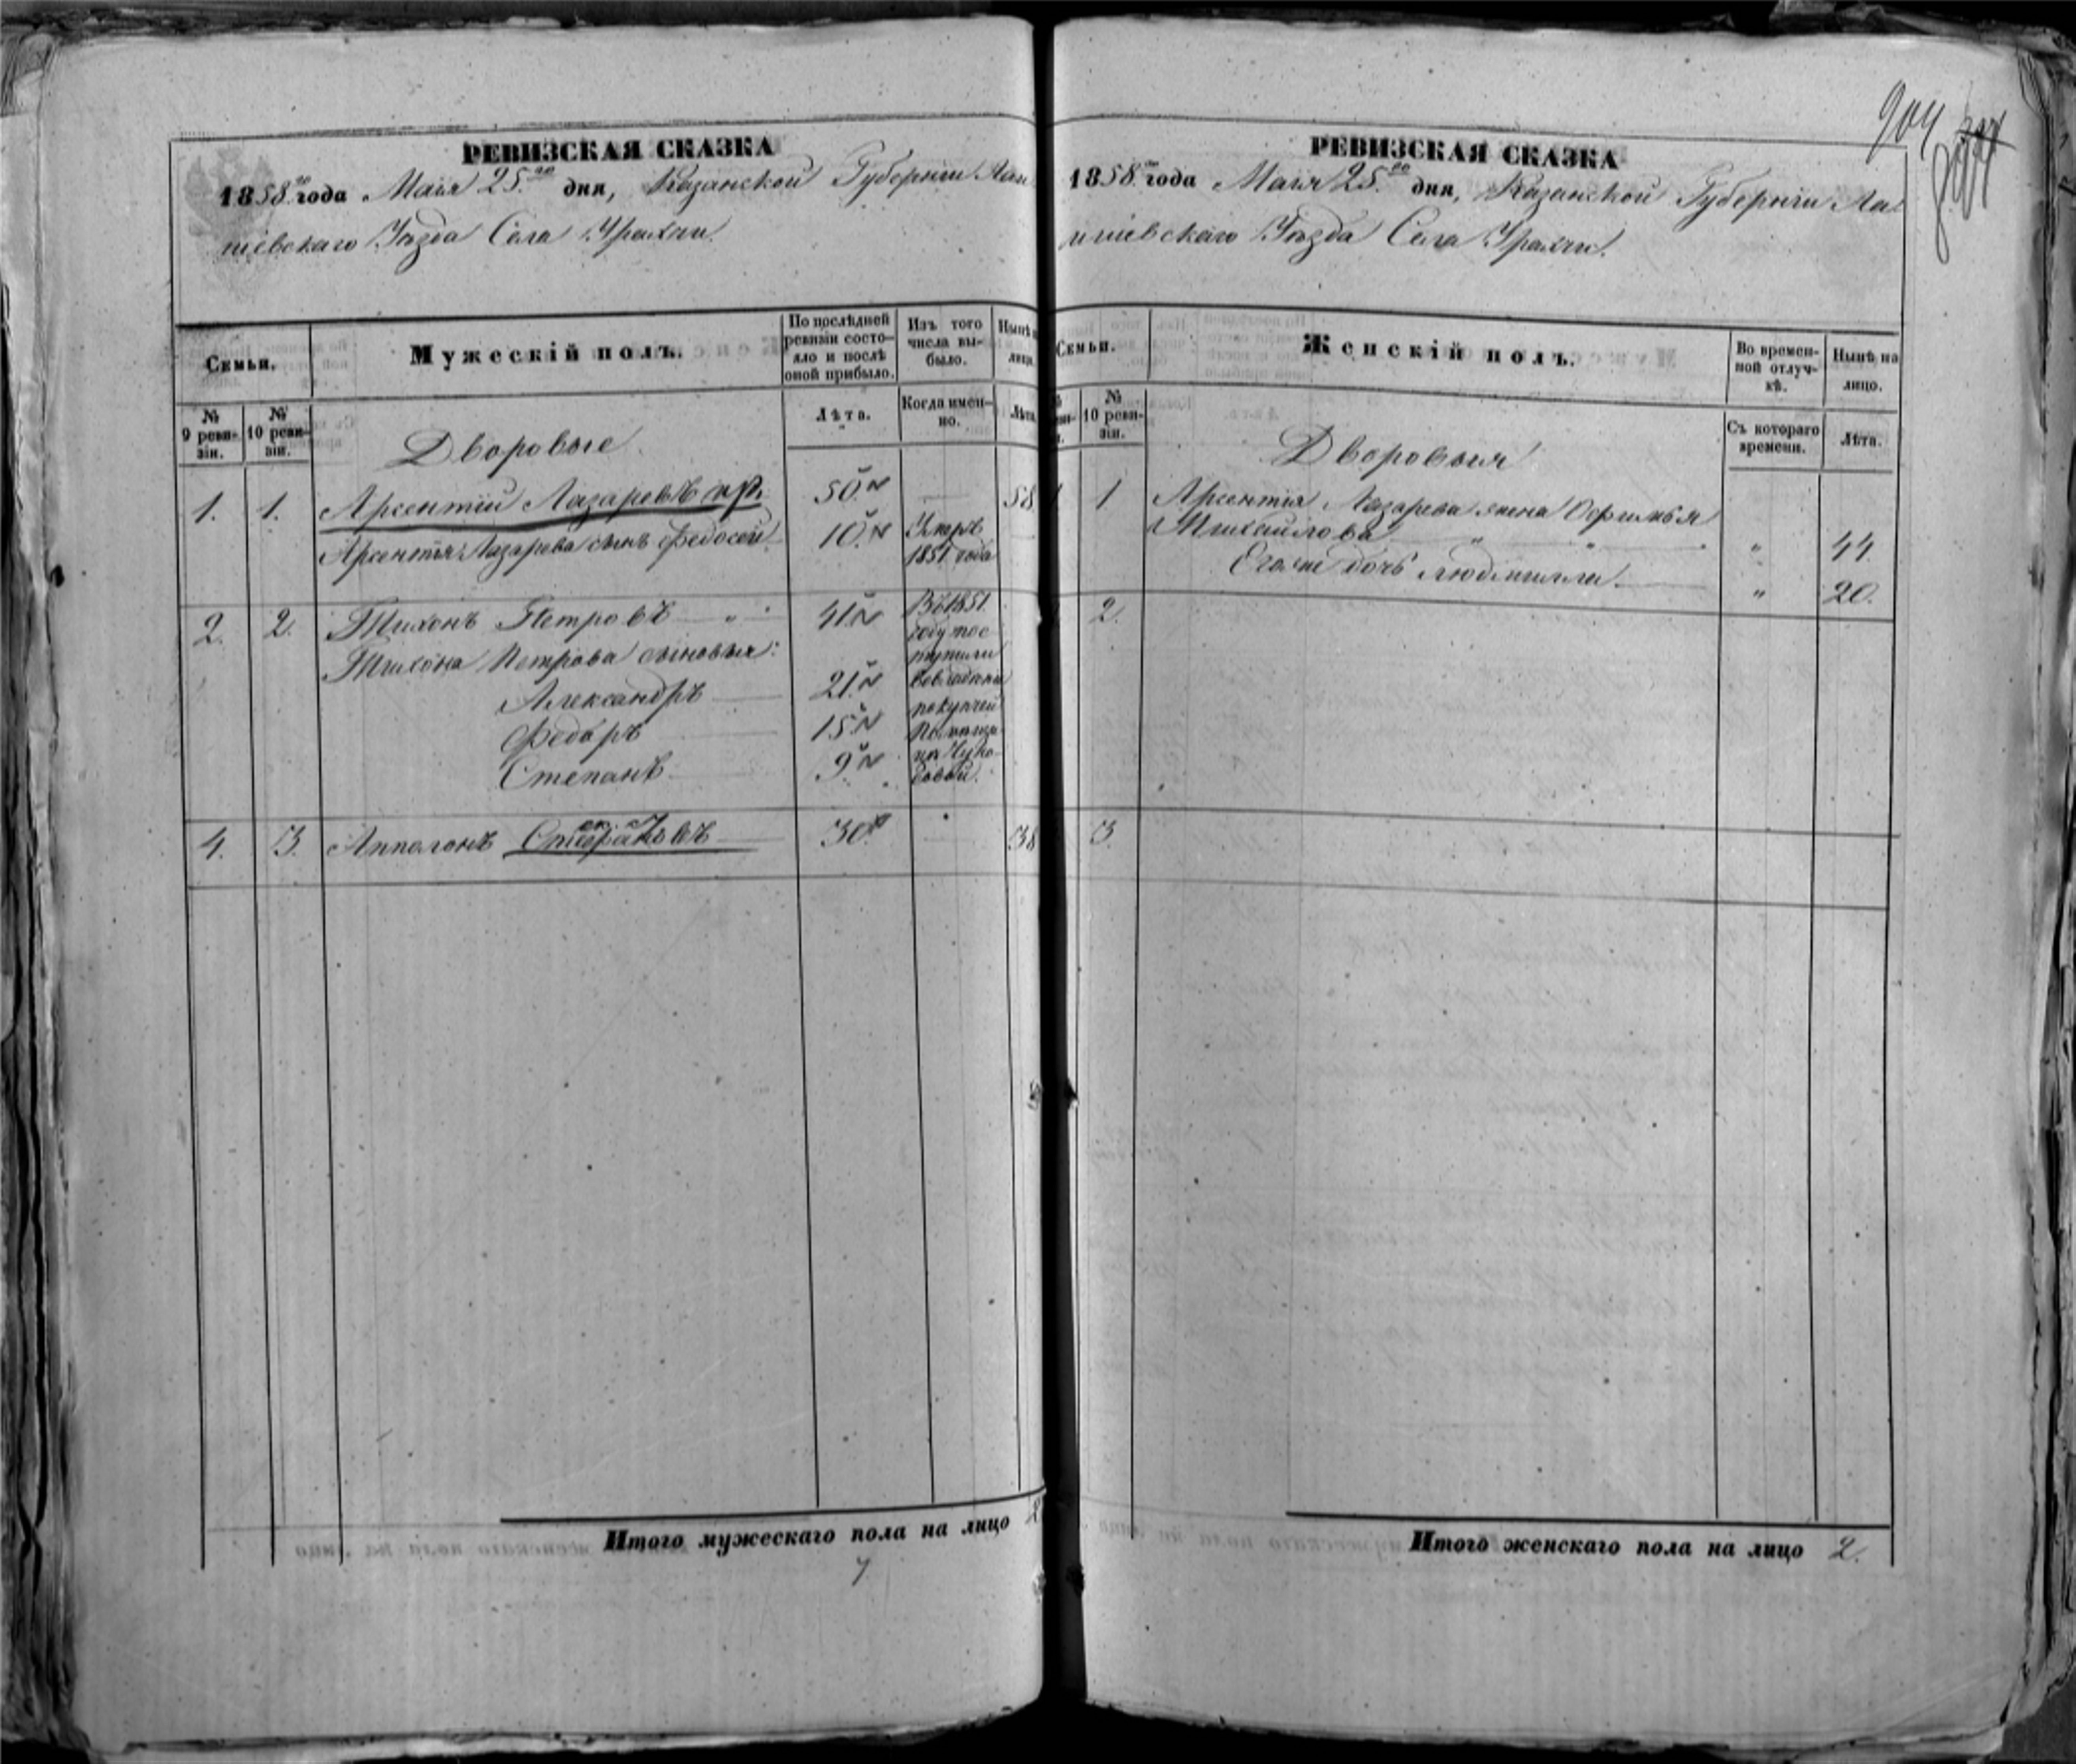 РЕВИЗСКАЯ СКАЗКА
1858го года Маія 25го дня, Казанской Губерніи Лаи
шевскаго Уѣзда Села Урахчи.
Семьи.
Мужескій полъ.
По послѣдней ревизіи состояло и послѣ оной прибыло.
Изъ того числа выбыло.
Нынѣ на лицо.
№ 9 ревизіи.
№ 10 ревизіи.
Лѣта.
Когда именно.
Лѣта.
Дворовые
1. 1. Арсентій Лазаревъ 50. 58
Арсентія Лазарева сынъ Федосей 10. Умеръ 1851 года
2. 2. Тихонъ Петровъ — „ 41. Въ 1851
году пос
тупили
Тихона Петрова сыновья:
Александръ 21
Федоръ 15.
Степанъ 9.
4. 3. Апполонъ 30. 38
Итого мужескаго пола на лицо 2
РЕВИЗСКАЯ СКАЗКА
1858го года Маія 25го дня, Казанской Губерніи Ла
ишевскаго Уѣзда Села Урахчи.
904
Семьи.
Женскій полъ.
Во временной отлучкѣ.
Нынѣ на лицо.
№ 10 ревизіи.
Съ котораго времени.
Лѣта.
Дворовыя
1 Арсентія Лазарева жена Офимья
Михайлова „ „ „ 44.
Егоже дочь Людмилла. „ 20.
2.
3.
Итого женскаго пола на лицо 2.